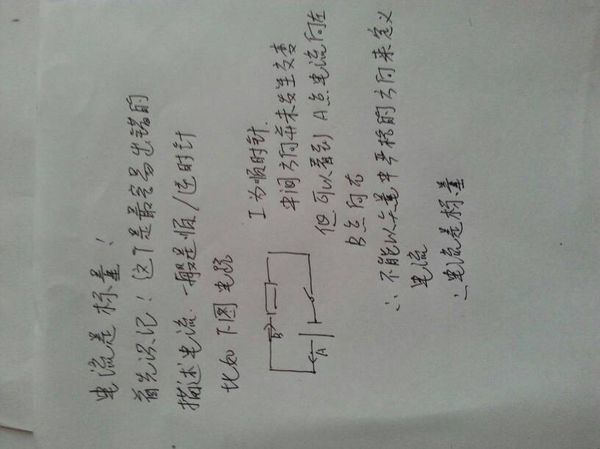 电流是 标量！
首先识记！这个是最容易出错的
描述电流 一般是顺/逆时针
比如下图 电路
B
A
I为顺时针.
中间方向并未发生改变
但可以看到 A点电流向左
B点向右
∴ 不能以矢量中严格的方向来定义
电流
∴电流是标量